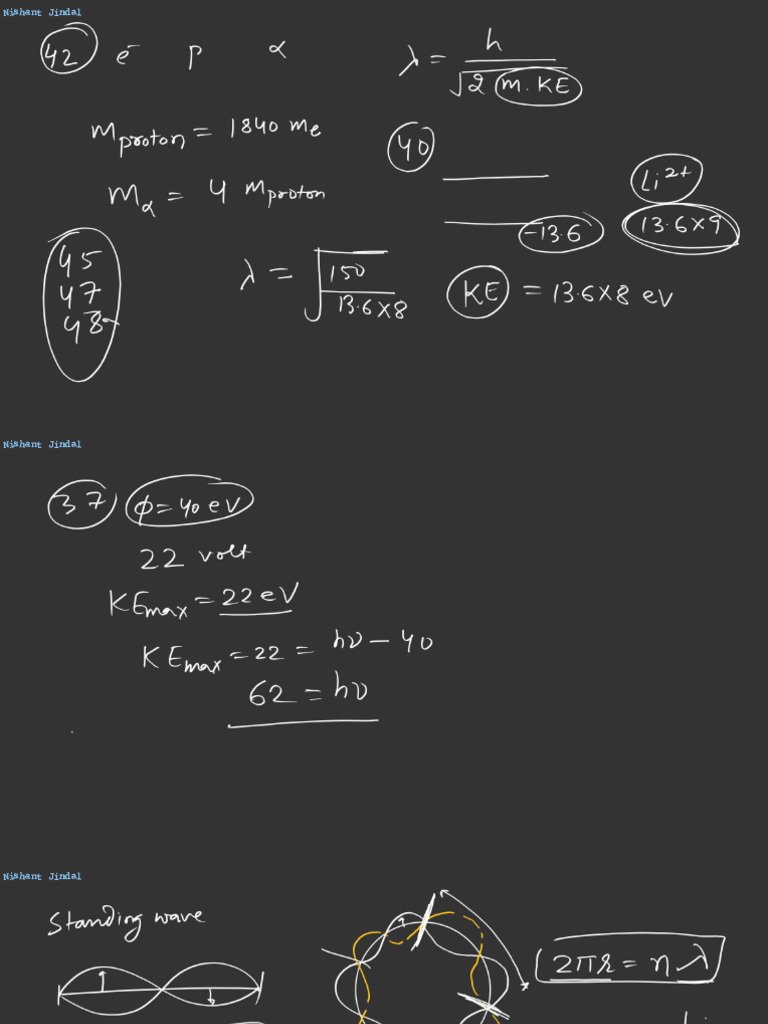 Nishant Jindal
42 e⁻ p α λ = h / √2 m.KE
m proton = 1840 me
40
mα = 4 m proton
Li²⁺
-13.6 13.6×9
45
47
48
λ = √150 / 13.6×8
KE = 13.6×8 eV
Nishant Jindal
37 φ = 40 eV
22 volt
KEmax = 22 eV
KEmax = 22 = hν - 40
62 = hν
Nishant Jindal
Standing wave
2πr = nλ